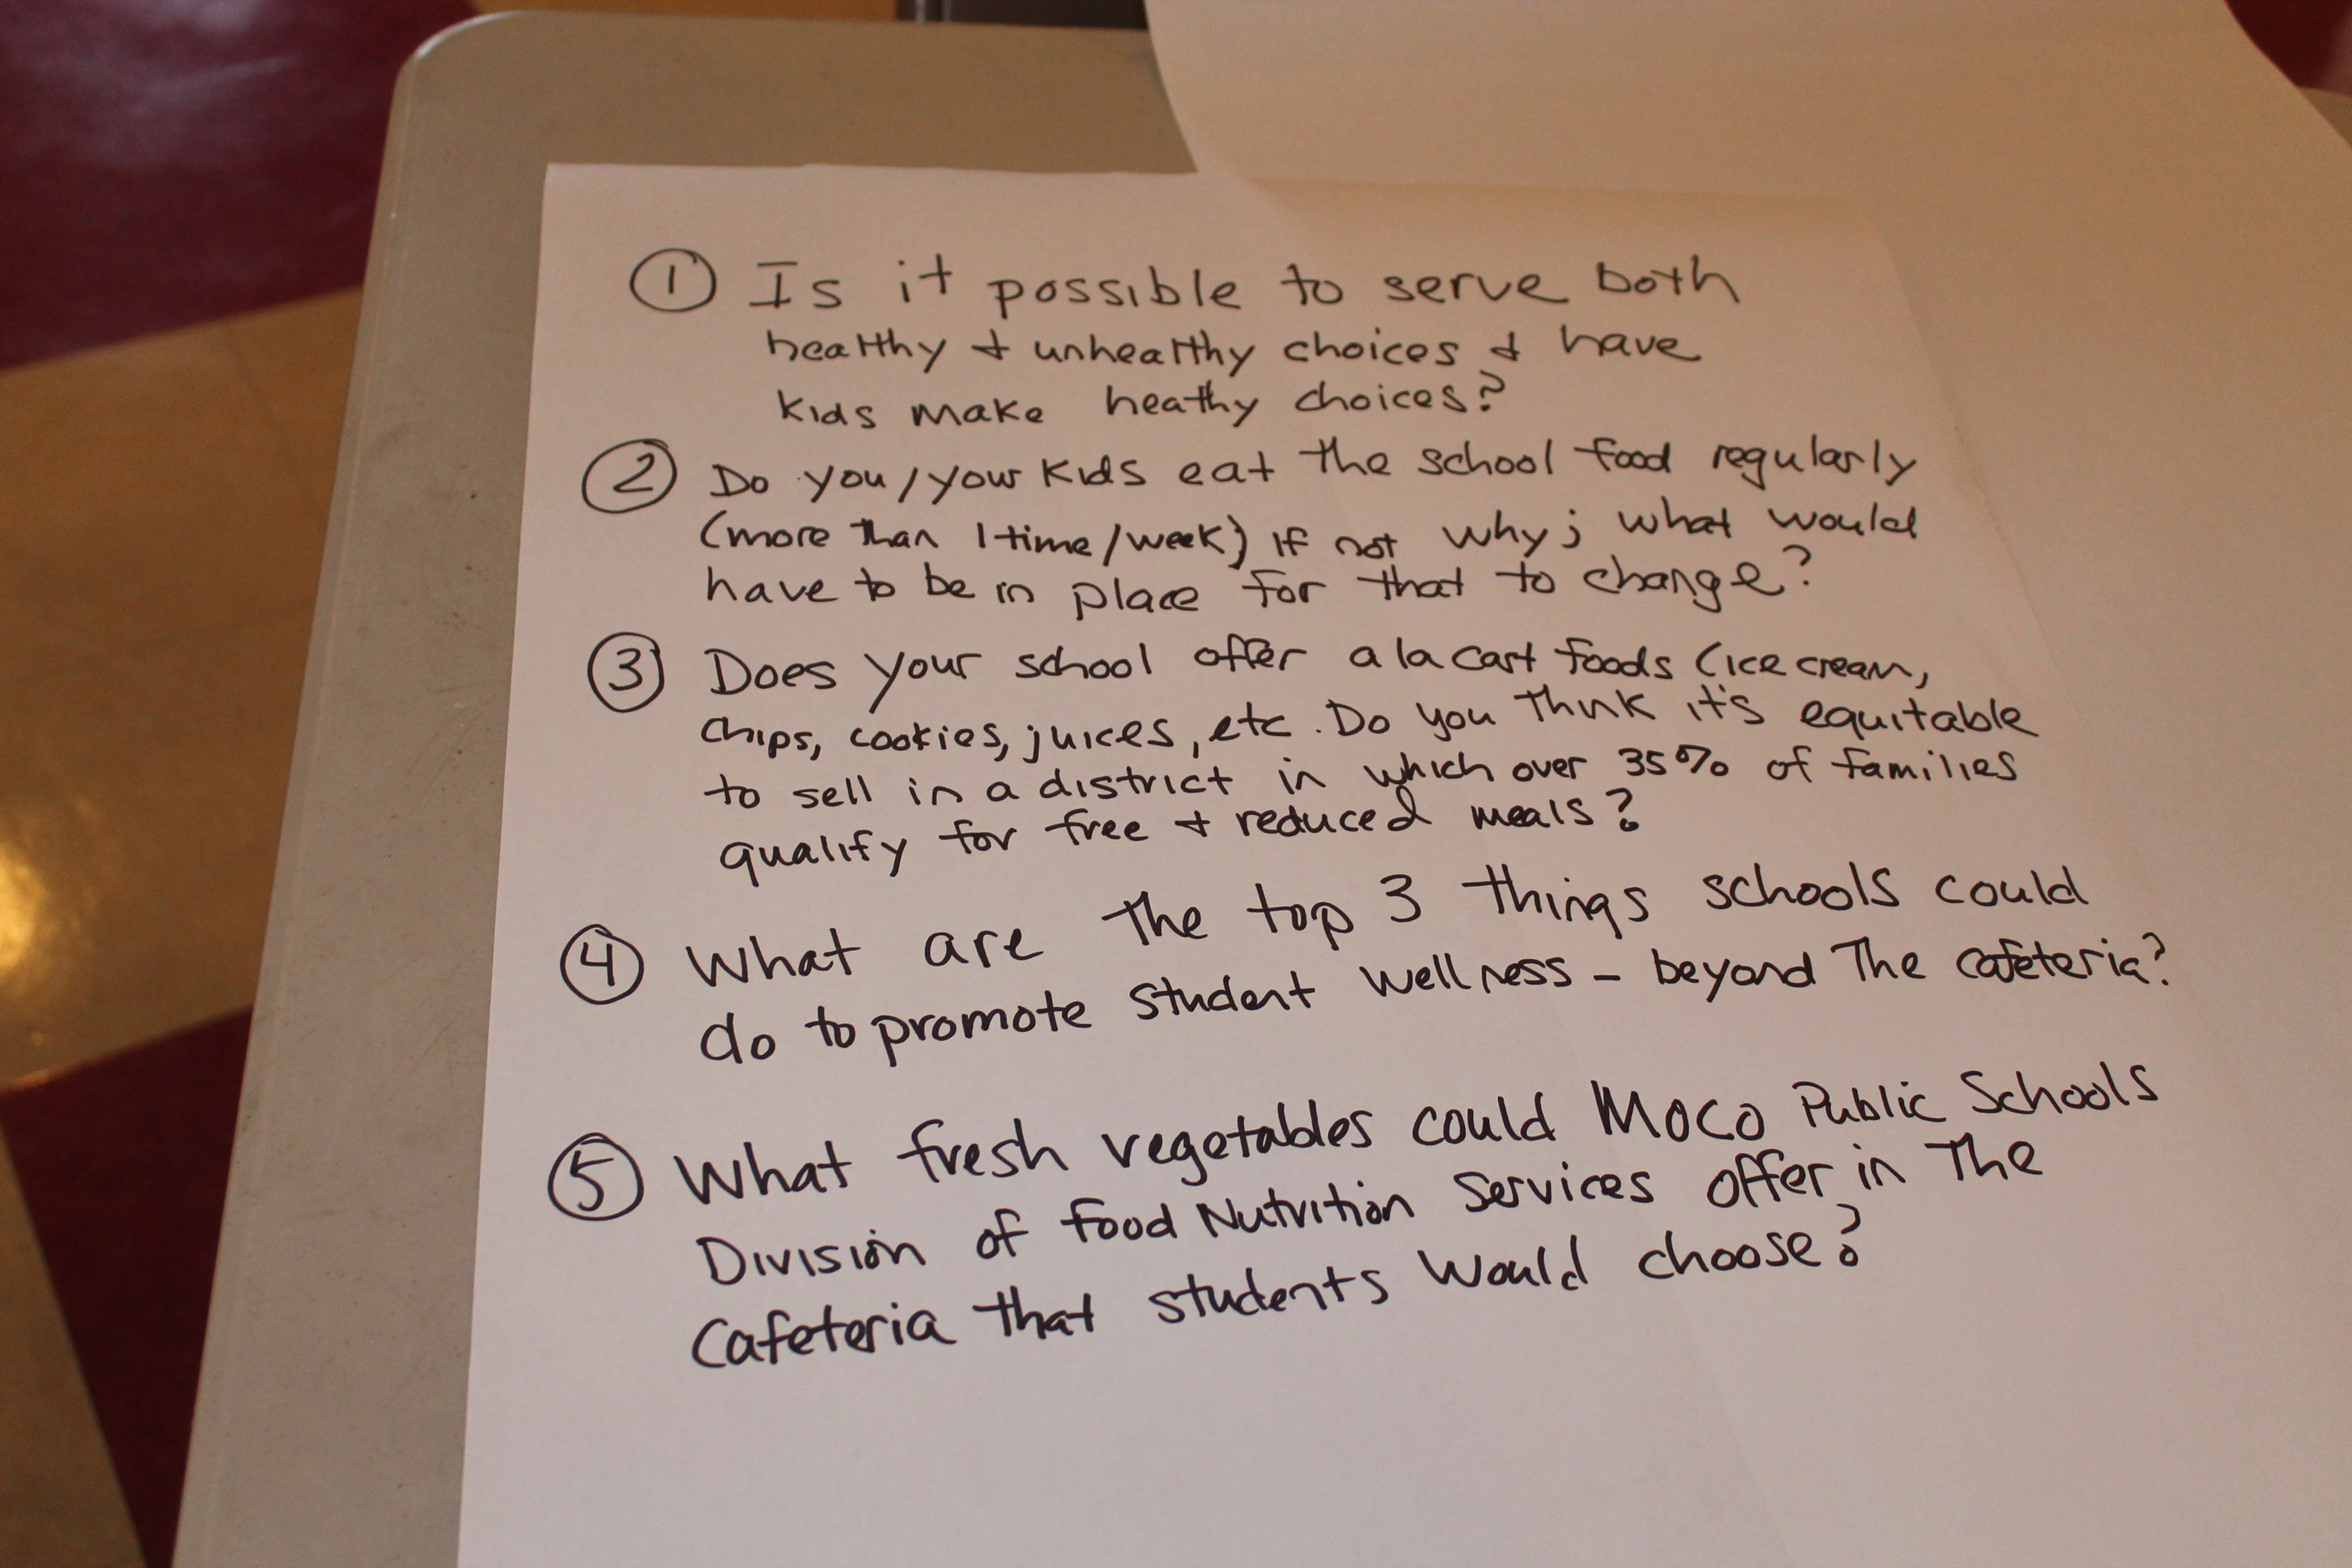 ① Is it possible to serve both
healthy + unhealthy choices + have
kids make heathy choices?
② Do you/your kids eat the school food regularly
(more than 1 time/week) If not why; what would
have to be in place for that to change?
③ Does your school offer a la cart foods (ice cream,
chips, cookies, juices, etc. Do you think it's equitable
to sell in a district in which over 35% of families
qualify for free + reduced meals?
④ What are the top 3 things schools could
do to promote student wellness - beyond the cafeteria?
⑤ What fresh vegetables could MoCo Public Schools
Division of Food Nutrition Services offer in the
Cafeteria that students would choose?